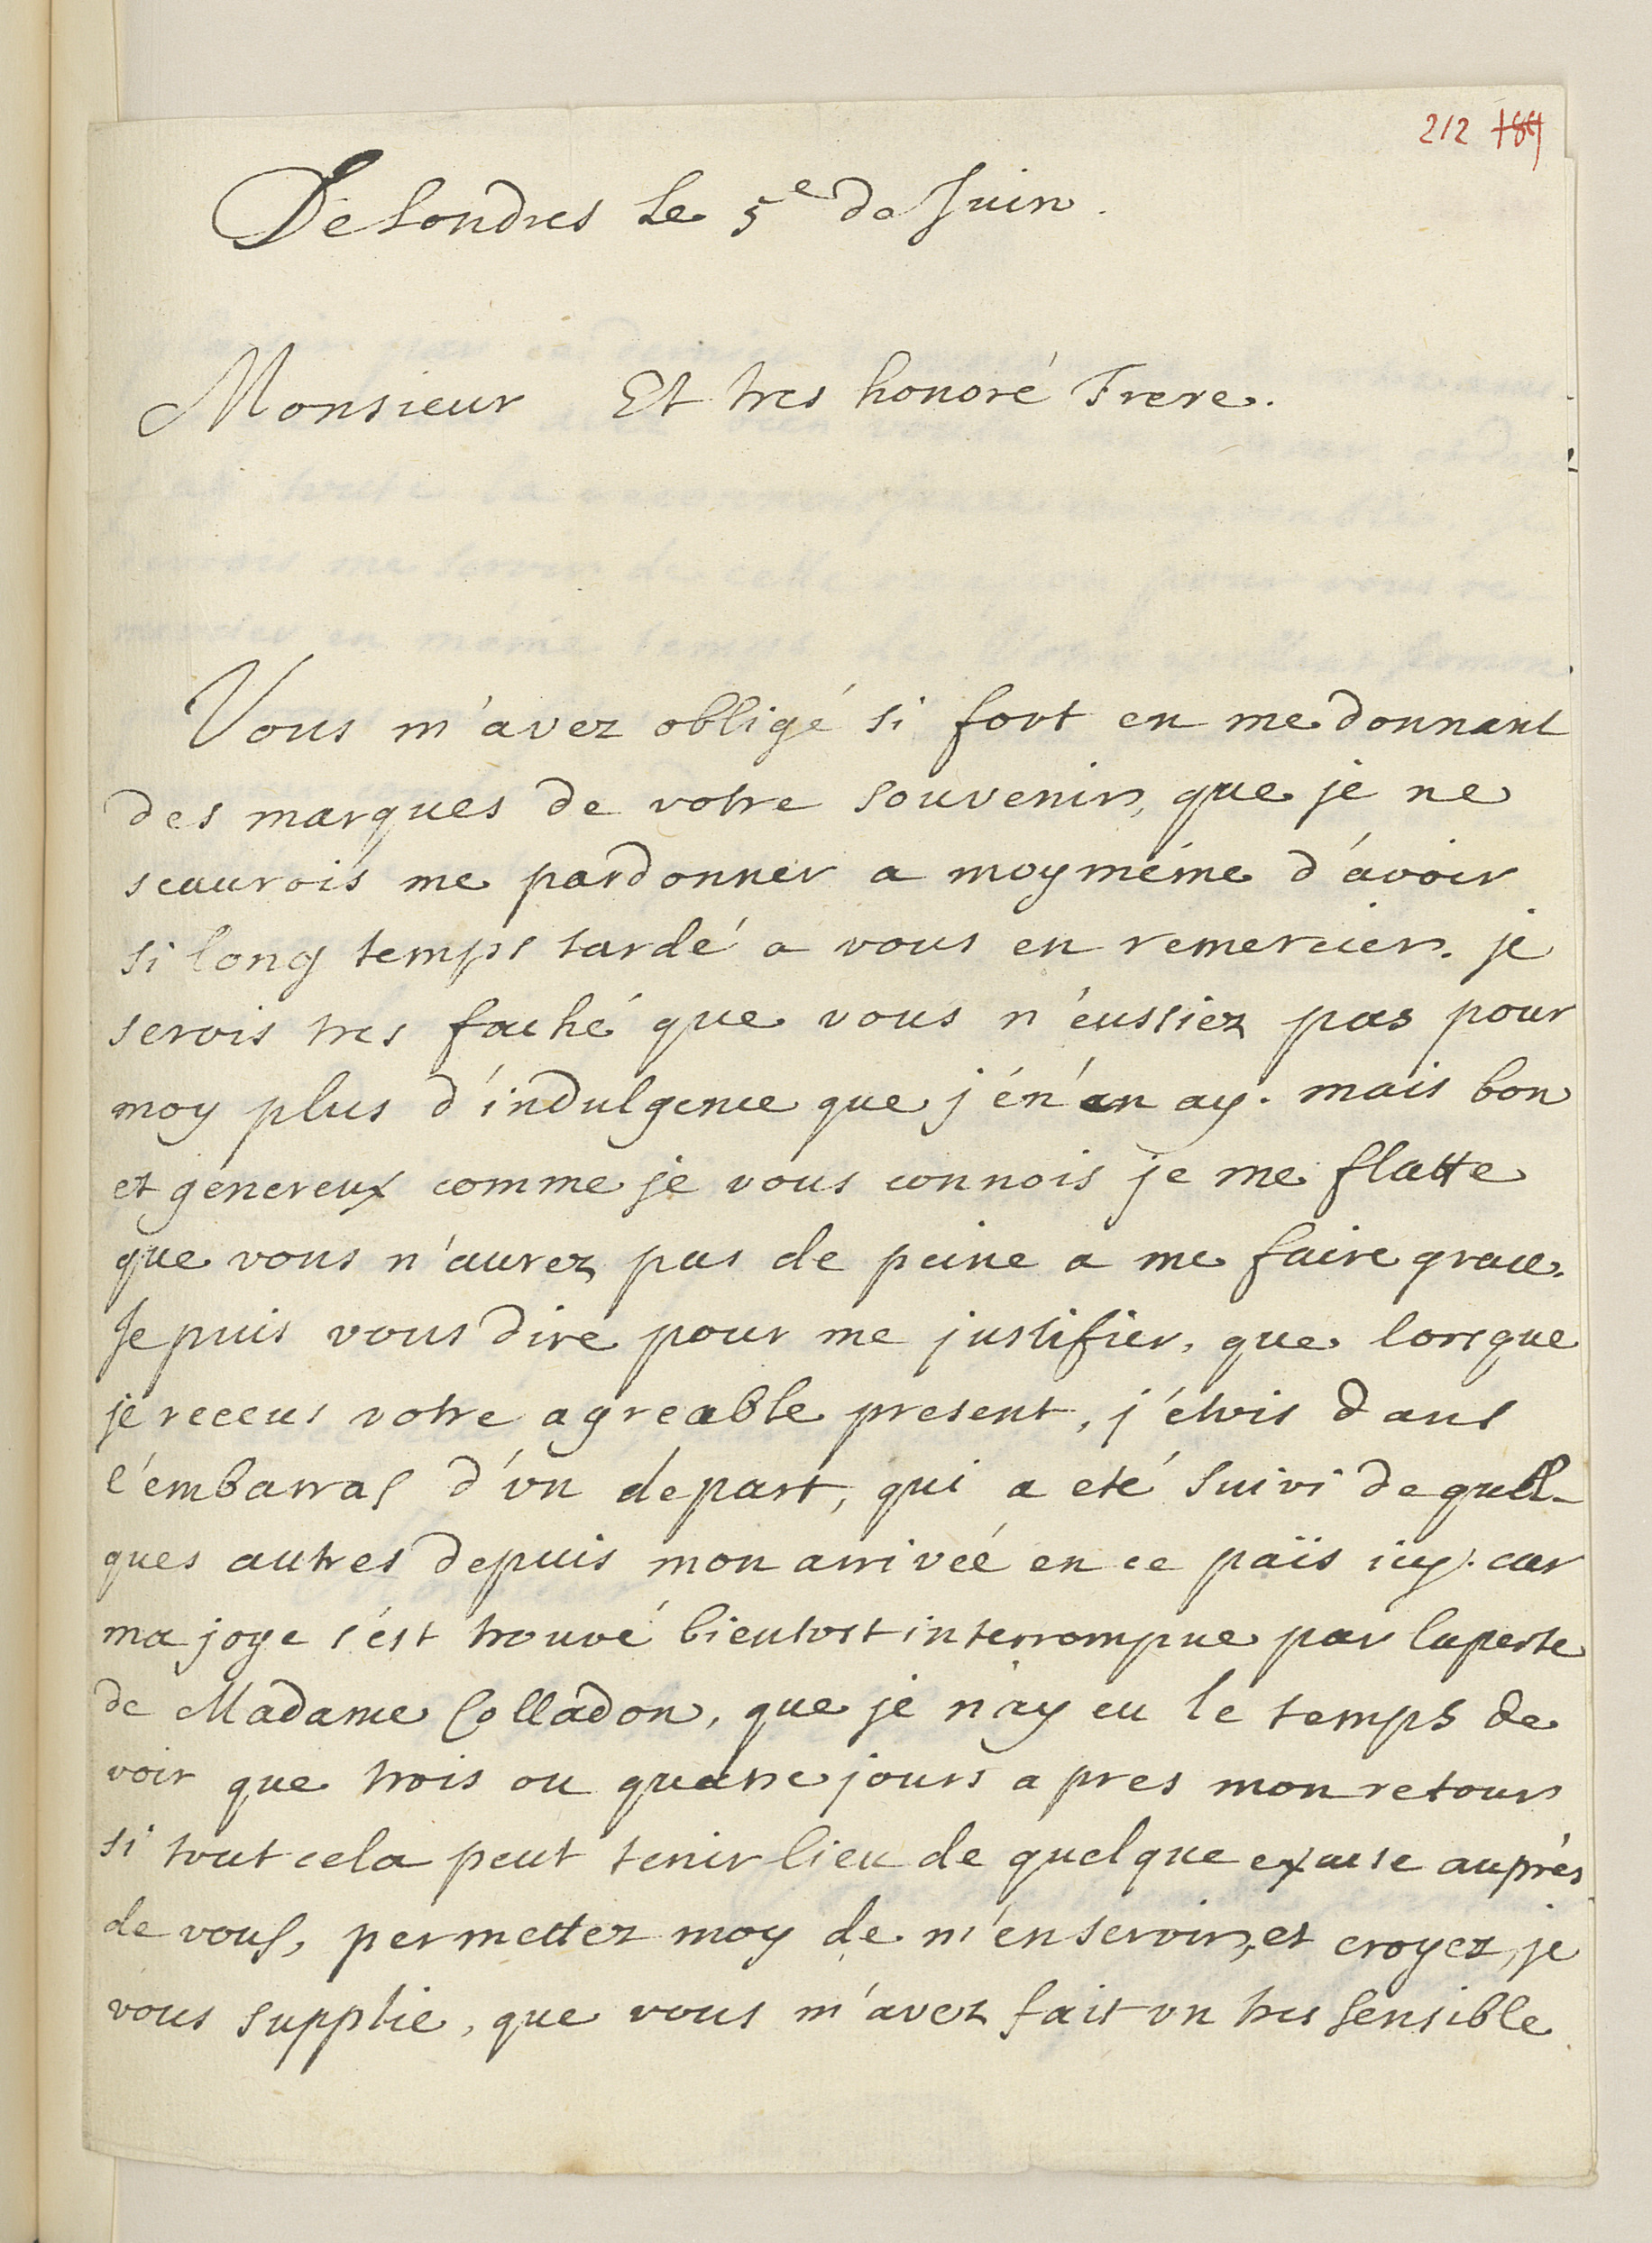 212 189
De Londres Le 5e de Juin.
Monsieur Et tres honoré Frere.
Vous m'avez obligé si fort en me donnant
des marques de votre souvenir, que je ne
scaurois me pardonner a moy méme d'avoir
si long temps tardé a vous en remercier. je
serois tres faché que vous n'eussiez pas pour
moy plus d'indulgence que j'én'en ay. mais bon
et genereux comme je vous connois je me flatte
que vous n'aurez pas de peine a me faire grace.
Je puis vous dire pour me justifier, que lorsque
je receus votre agreable present, j'étois dans
l'embarras d'vn départ, qui a eté suivi de quel-
ques autres depuis mon arrivéé en ce païs icy. car
ma joye s'est trouvé bientost interrompue par la perte
de Madame Colladon, que je n'ay eu le temps de
voir que trois ou quatre jours apres mon retour
si tout cela peut tenir lieu de quelque excuse auprés
de vous, permettez moy de m'en servir, et croyez, je
vous supplie, que vous m'avez fait vn tres sensible